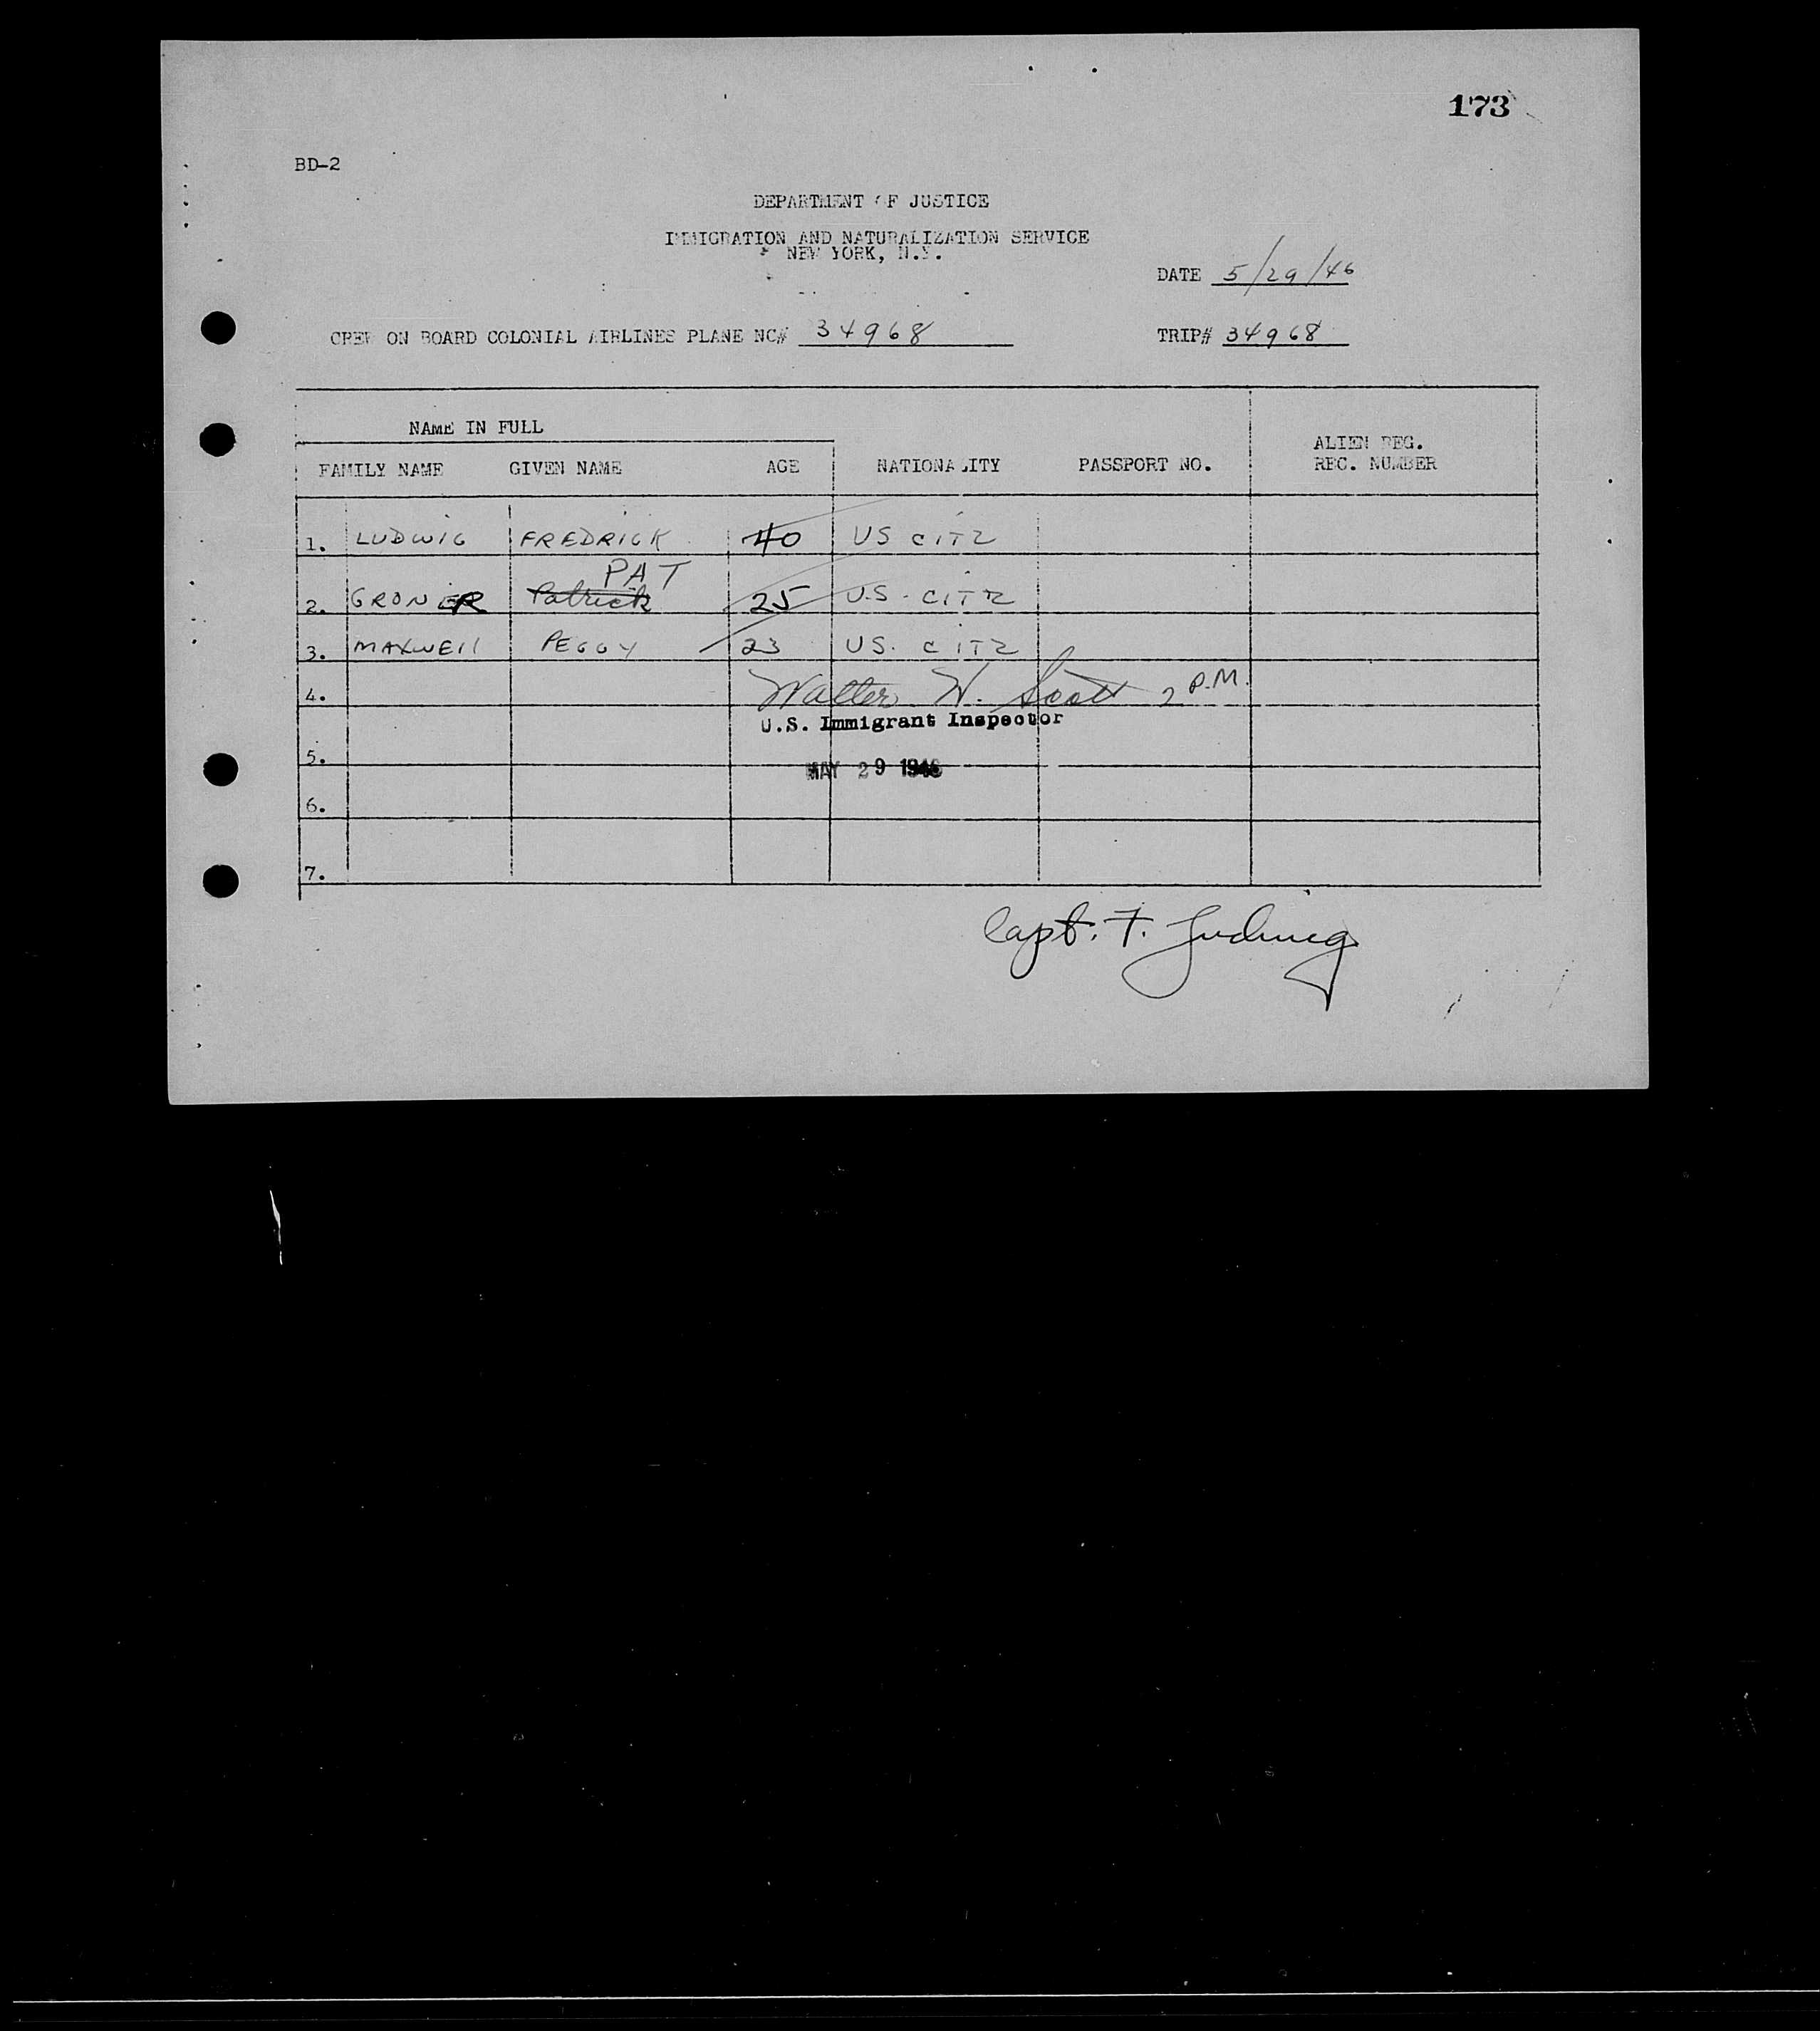 173
BD-2
DEPARTMENT OF JUSTICE
IMMIGRATION AND NATURALIZATION SERVICE
NEW YORK, N.Y.
DATE 5/29/46
CREW ON BOARD COLONIAL AIRLINES PLANE NC# 34968 TRIP# 34968
NAME IN FULL
FAMILY NAME GIVEN NAME AGE NATIONALITY PASSPORT NO. ALIEN REG. REC. NUMBER
1. LUDWIG FREDRICK 40 US CITZ
PAT
2. GRONER Patrick 25 U.S. CITZ
3. MAXWEll PEGGY 23 US. CITZ
4. Walter W. Scott 2 P.M.
U.S. Immigrant Inspector
5.
MAY 29 1946
6.
7.
Capt. F. Ludwig